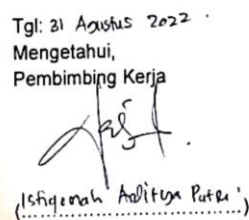 Tgl: 31 Agustus 2022
Mengetahui,
Pembimbing Kerja
(Istiqomah Aditya Putri)